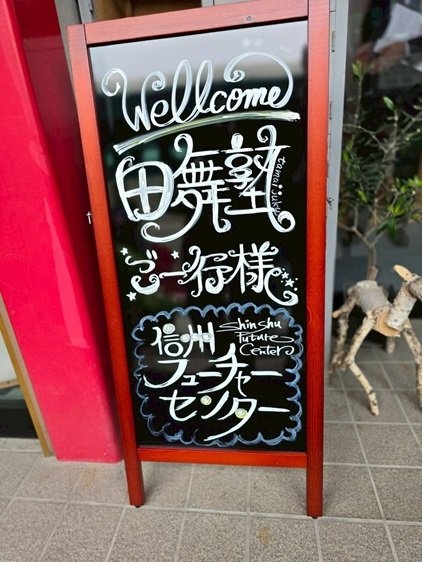 Wellcome
田舞塾
tamaijuku
ご一行様
信州
Shinshu
Future
Center
フューチャー
センター